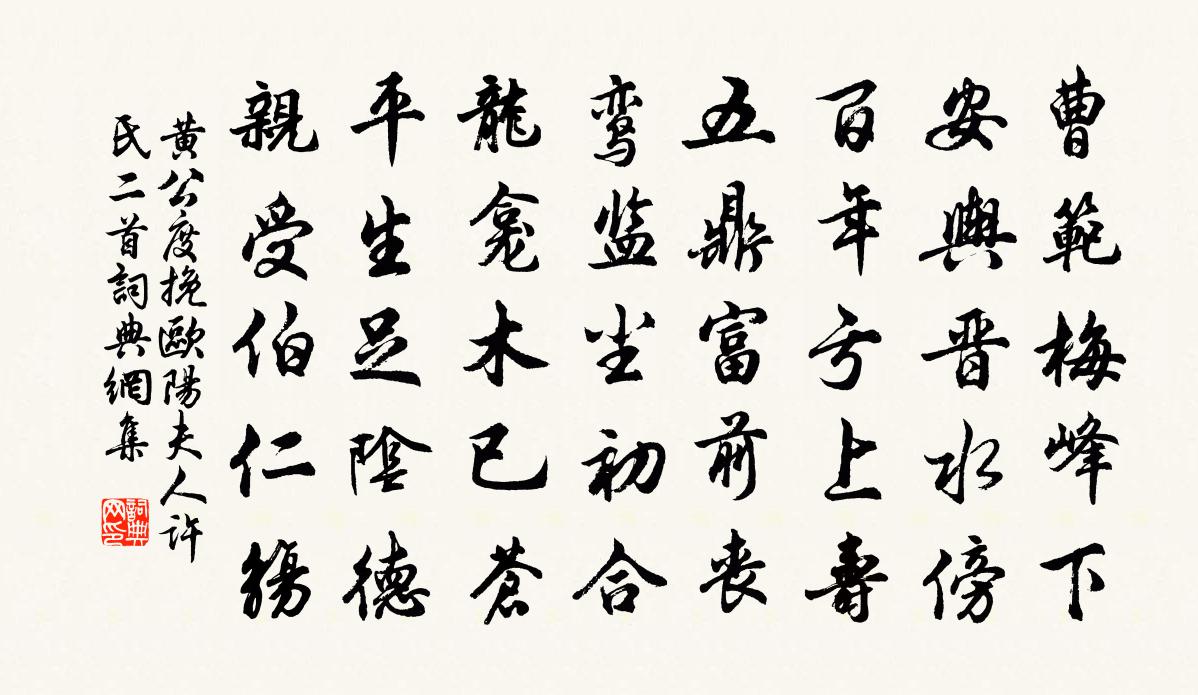 曹範梅峰下
安輿晋水傍
百年亏上壽
五鼎富前丧
鸾监尘初合
龍龛木已蒼
平生足陰德
親受伯仁觴
黄公度挽歐陽夫人許
氏二首詞典網集
詞典网印